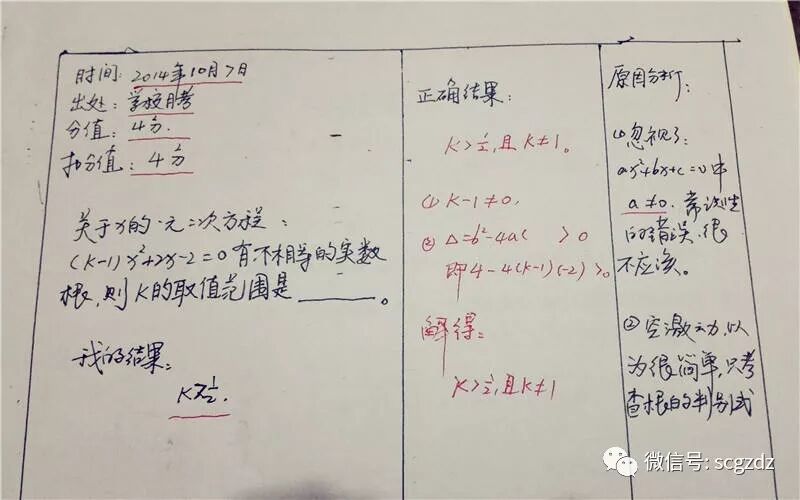 时间: 2014年10月7日
出处: 学校月考
分值: 4分.
扣分值: 4分
关于x的一元二次方程:
(K-1)x²+2x-2=0有不相等的实数
根,则K的取值范围是______。
我的结果:
K≥½.
正确结果:
K>½,且K≠1。
① K-1≠0,
② Δ=b²-4ac >0
即4-4(K-1)(-2)>0
解得:
K>½,且K≠1
原因分析:
①忽视了:
ax²+bx+c=0中
a≠0. 常识性
的错误.很
不应该。
②容激动,以
为很简单,只考
查根的判别式
微信号: scgzdz